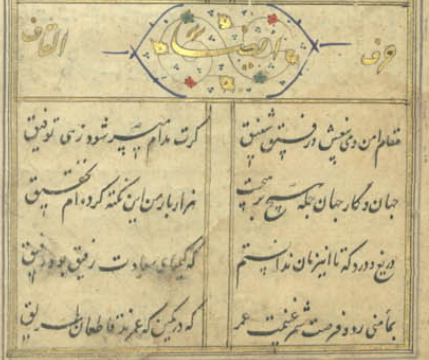 حرف ایضا القاف
مقام امن و می بیغش و رفیق شفیق
گرت مدام میسر شود زهی توفیق
جهان و کار جهان جمله هیچ بر هیچست
هزار بار من این نکته کرده‌ام تحقیق
دریغ و درد که تا این زمان ندانستم
که کیمیای سعادت رفیق بود رفیق
بمأمنی رو و فرصت شمر غنیمت عمر
که در کمین که عمرند قاطعان طریق